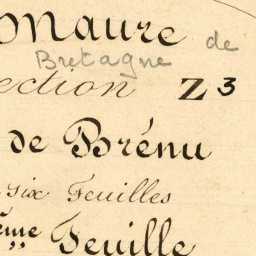 Maure de
Bretagne
ection Z3
de Brénu
six Feuilles
ème Feuille